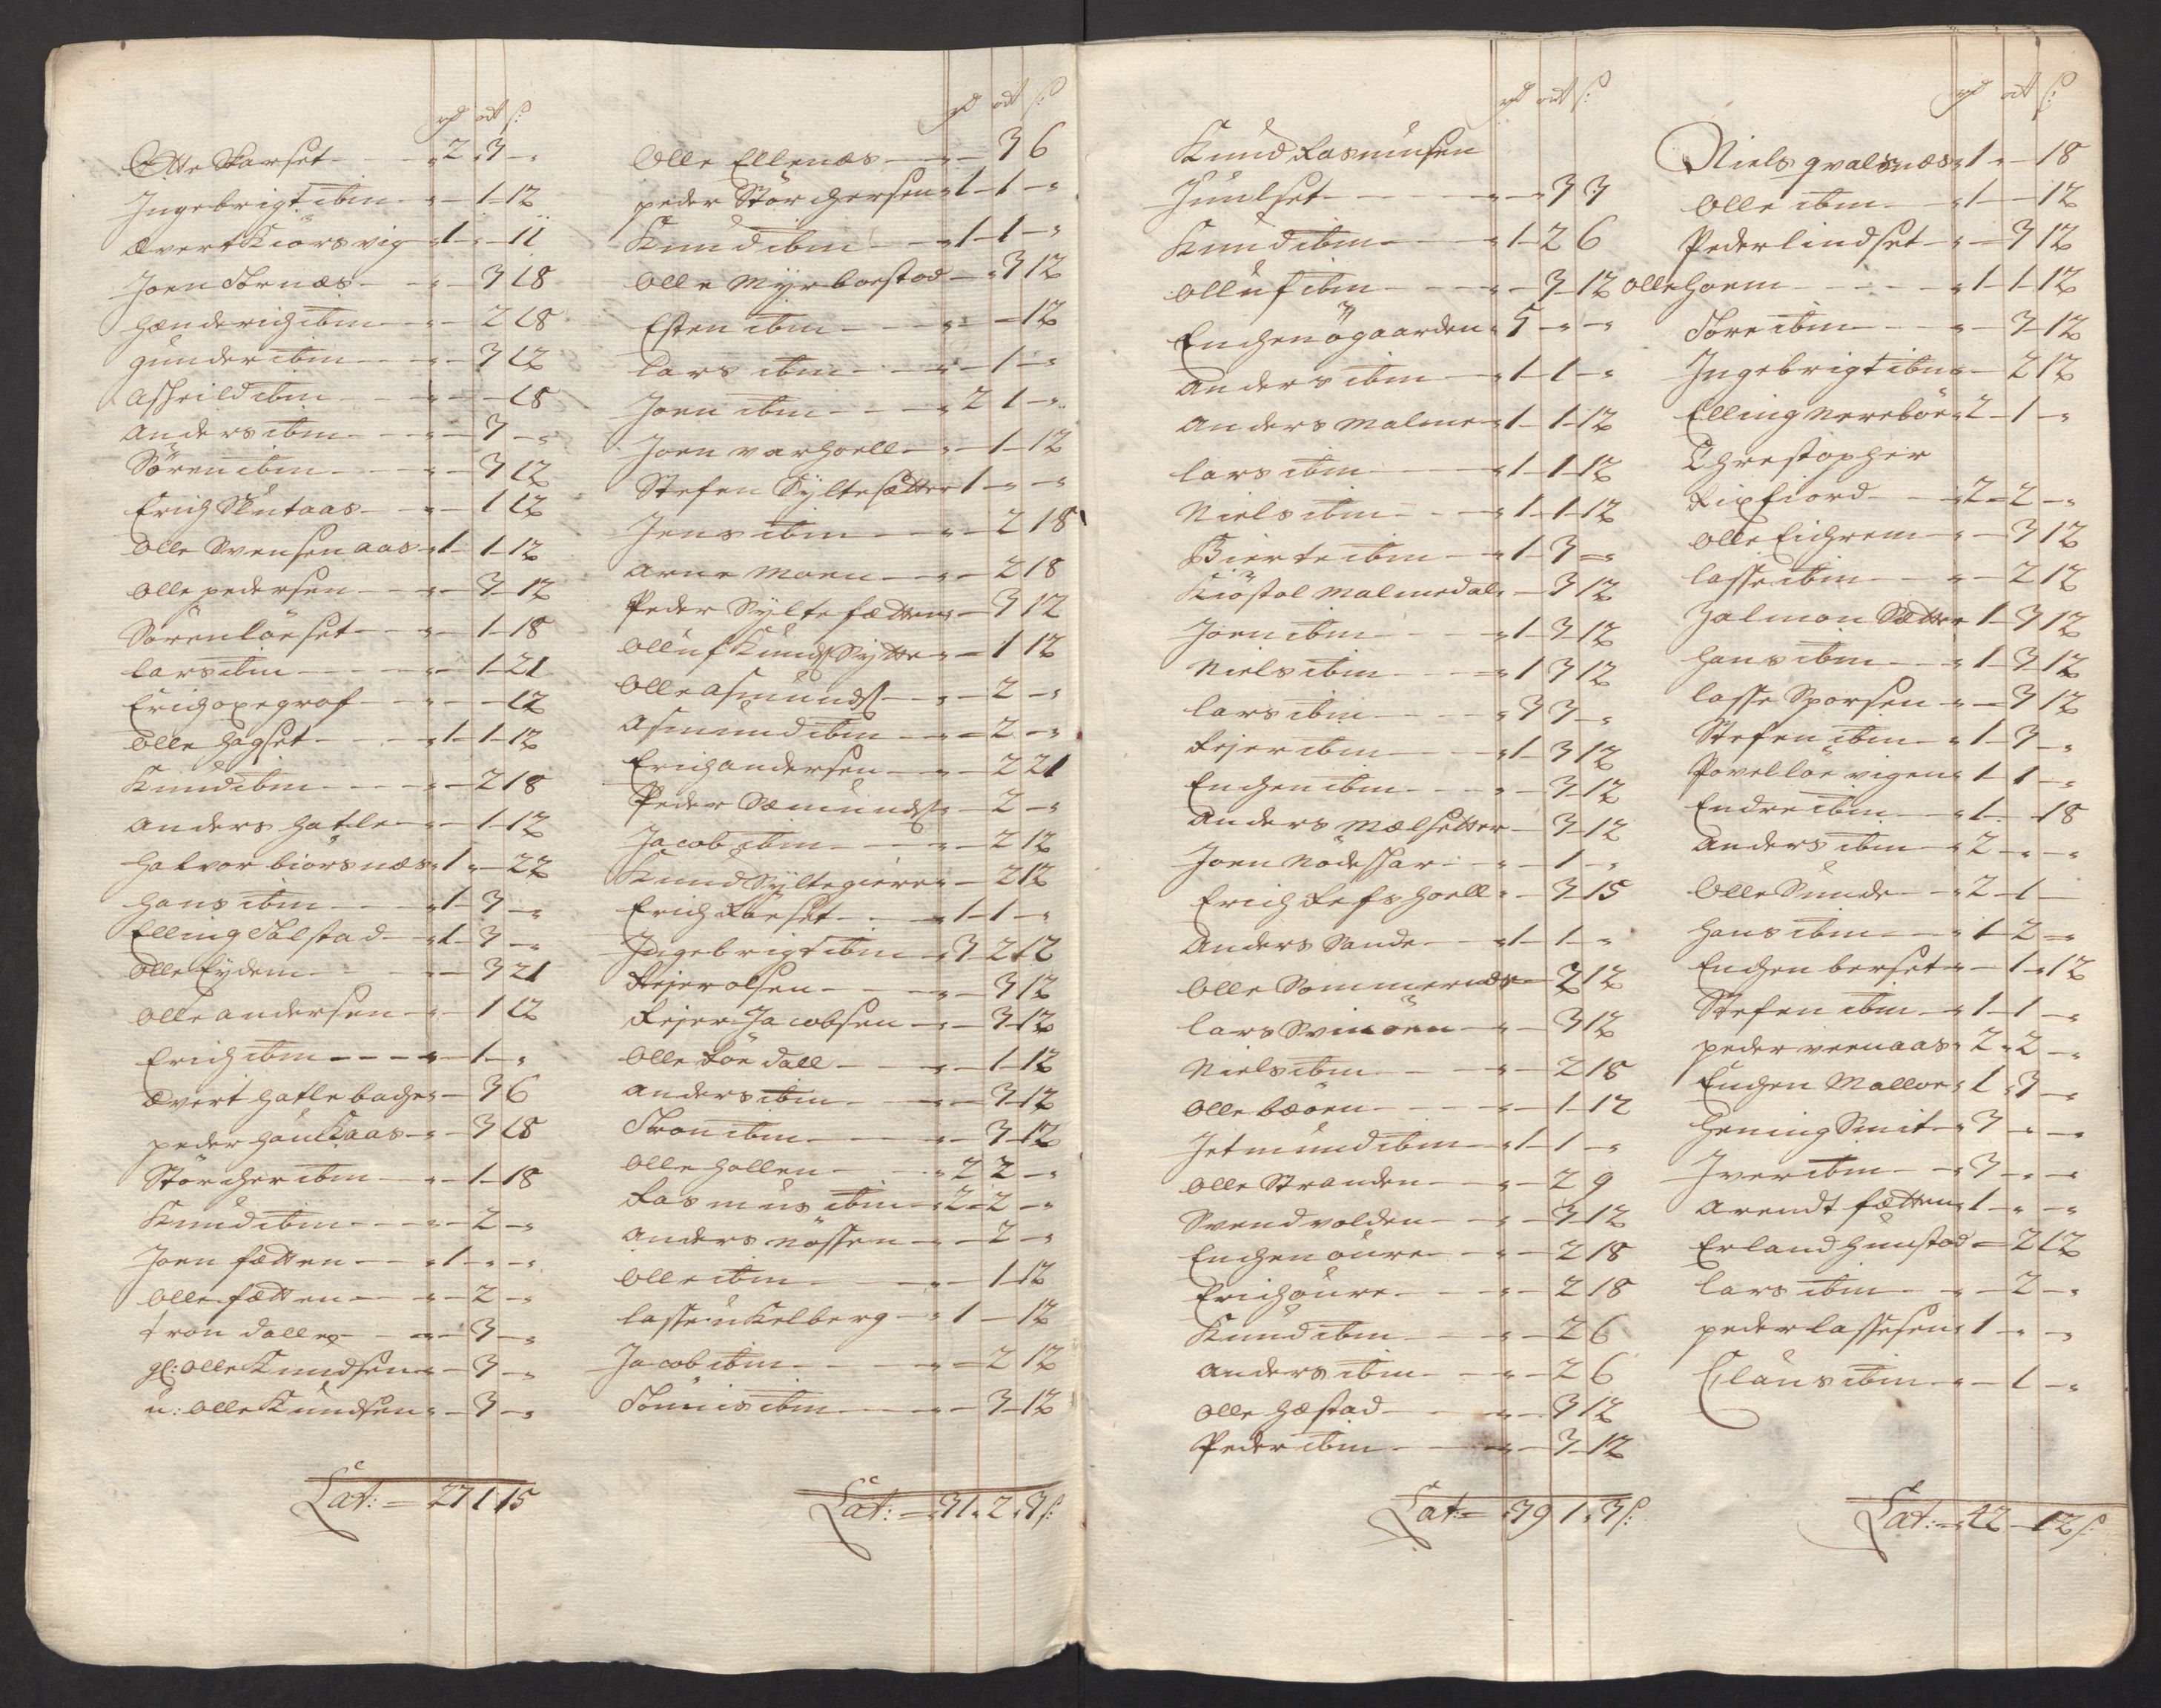 rd ort ß:
Otte Skarset - " 2 " 3 - "
Ingebrigt ibm - " - 1 - 12
Ævert Kiorsvig - " 1 - " - 11
Joen Tornæs - " - 3 18
Hænderich ibm - " - 2 18
gunder ibm - " - 3 12
Aslheild ibm - " - " - 18
Anders ibm - " - 3 - "
Sören ibm - " - 3 12
Erich Skutaas - " - 1 12
Olle Svensen aas - " 1 - 1 - 12
Olle pedersen - " - 3 - 12
Sören löeset - " - 1 - 18
lars ibm - " - 1 - 21
Erich opegraf - " - - 12
Olle Hagset - " 1 - 1 - 12
Knud ibm - " - 2 18
Anders Hatle - " - 1 - 12
Halvor biörsnæs " 1 " - 22
Hans ibm - " 1 - 3 - "
Elling Tolstad - " 1 - 3 - "
Olle Eydem - " - 3 21
Olle andersen - " - 1 12
Erich ibm - " - 1 - "
Ævert Hatlebache " - 3 6
peder Haukaas - " - 3 18
Störcher ibm - " - 1 - 18
Knud ibm - " - 2 - "
Joen fætten - " 1 - " - "
Olle fætten - " - 2 - "
Tron dalle - " - 3 - "
gl: Olle Knudsen " - 3 - "
u: Olle Knudsen " - 3 - "
Lat: = 27 1 15
rd ort ß:
Olle Ellenæs - " - 3 6
peder Störchersen " 1 - 1 - "
Knud ibm - " 1 - 1 - "
Olle Myrbostad - " 3 12
Esten ibm - " - - 12
Lars ibm - " - 1 - "
Joen ibm - " 2 1 - "
Joen varhoell - " - 1 - 12
Stefen Syltesætter 1 - " - "
Jens ibm - " - 2 18
Arne Moen - " - 2 18
Peder Syltefætten " - 3 12
Olluf Knuds Sylte - " - 1 12
Olle Asmunds - " - 2 - "
Asmund ibm - " - 2 - "
Erich andersen - " - 2 21
Peder Sæmunds " - 2 - "
Jacob ibm - " - 2 12
Knud Syltegiære " - 2 12
Erich Röeset - " 1 - 1 - "
Ingebrigt ibm - " 3 - 2 12
Rejer olsen - " - 3 12
Rejer Jacobsen - " - 3 - 12
Olle Röe dall - " - 1 - 12
Anders ibm - " - 3 - 12
Tron ibm - " - 3 - 12
Olle Hollen - " 2 2 - "
Rasmus ibm - " 2 - 2 - "
Anders Nossen - " - 2 - "
Olle ibm - " - 1 - 12
lasse ukelberg - " 1 - 12
Jacob ibm - " - 2 12
Tönnis ibm - " - 3 - 12
Lat: = 31 " 2 " 3 ß:
rd ort ß:
Knud Rasmusen
Juulset - " - " 3 3
Knud ibm - " 1 - 2 6
Olluf ibm - " - 3 - 12
Enchen ögaarden " 5 - " - "
Anders ibm - " 1 - 1 - "
Anders Malme " 1 - 1 - 12
lars ibm - " 1 - 1 - 12
Niels ibm - " 1 - 1 - 12
Bierte ibm - " 1 - 3 - "
Kiöstol Malmedal " - 3 12
Joen ibm - " 1 - 3 - 12
Niels ibm - " 1 3 12
lars ibm - " 3 3 - "
Rejer ibm - " 1 - 3 12
Enchen ibm - " - 3 - 12
Anders Mælsetter - 3 - 12
Joen Nödeskar - " - 1 - "
Erich Refshoell " - 3 15
Anders Sande - " 1 - 1 - "
Olle Sommernæs - 3 12
lars Svinöen - " - 3 12
Niels ibm - " - 2 18
Olle bæöen - " - 1 - 12
Jetmund ibm - " 1 - 1 - "
Olle Stranden - " - 2 9
Svend volden - " - 3 - 12
Enchen oure - " - 2 18
Erich oure - " - 2 18
Knud ibm - " - 2 6
Anders ibm - " - 2 6
Olle Hæstad - " - 3 12
Peder ibm - " - 3 - 12
Lat: = 39 1 " 3 ß:
rd ort ß:
Niels qvalsnæs " 1 " - 18
Olle ibm - " 1 - - 12
Peder lindset - " - 3 12
Olle Hoem - " 1 - 1 - 12
Tore ibm - " - 3 - 12
Ingebrigt ibm " - 2 12
Elling Nereböe " 2 - 1 - "
Chrestopher
Ripfiord - " 2 - 2 - "
Olle Eichrem - " - 3 12
lasse ibm - " - 2 12
Jalmon Sætter 1 - 3 12
Hans ibm - " 1 - 3 12
lasse Sporsen - " - 3 12
Stefen ibm - " 1 - 3 - "
Povel löevigen " 1 - 1 - "
Endre ibm - " 1 - - 18
Anders ibm - " 2 - " - "
Olle Sunde - " 2 - 1 -
Hans ibm - " 1 - 2 - "
Enchen berset " - 1 " 12
Stefen ibm - " 1 - 1 - "
peder vernaas " 2 " 2 - "
Enchen Malloe " 1 " 3 - "
Hening Smit - " 3 - " - "
Iver ibm - " 3 - " - "
Arendt fætten " 1 - " - "
Erland Hunstad - 2 12
lars ibm - " - 2 - "
peder lassesen " 1 - " - "
Claus ibm - " - 1 - "
Lat: = 42 - 12 ß: